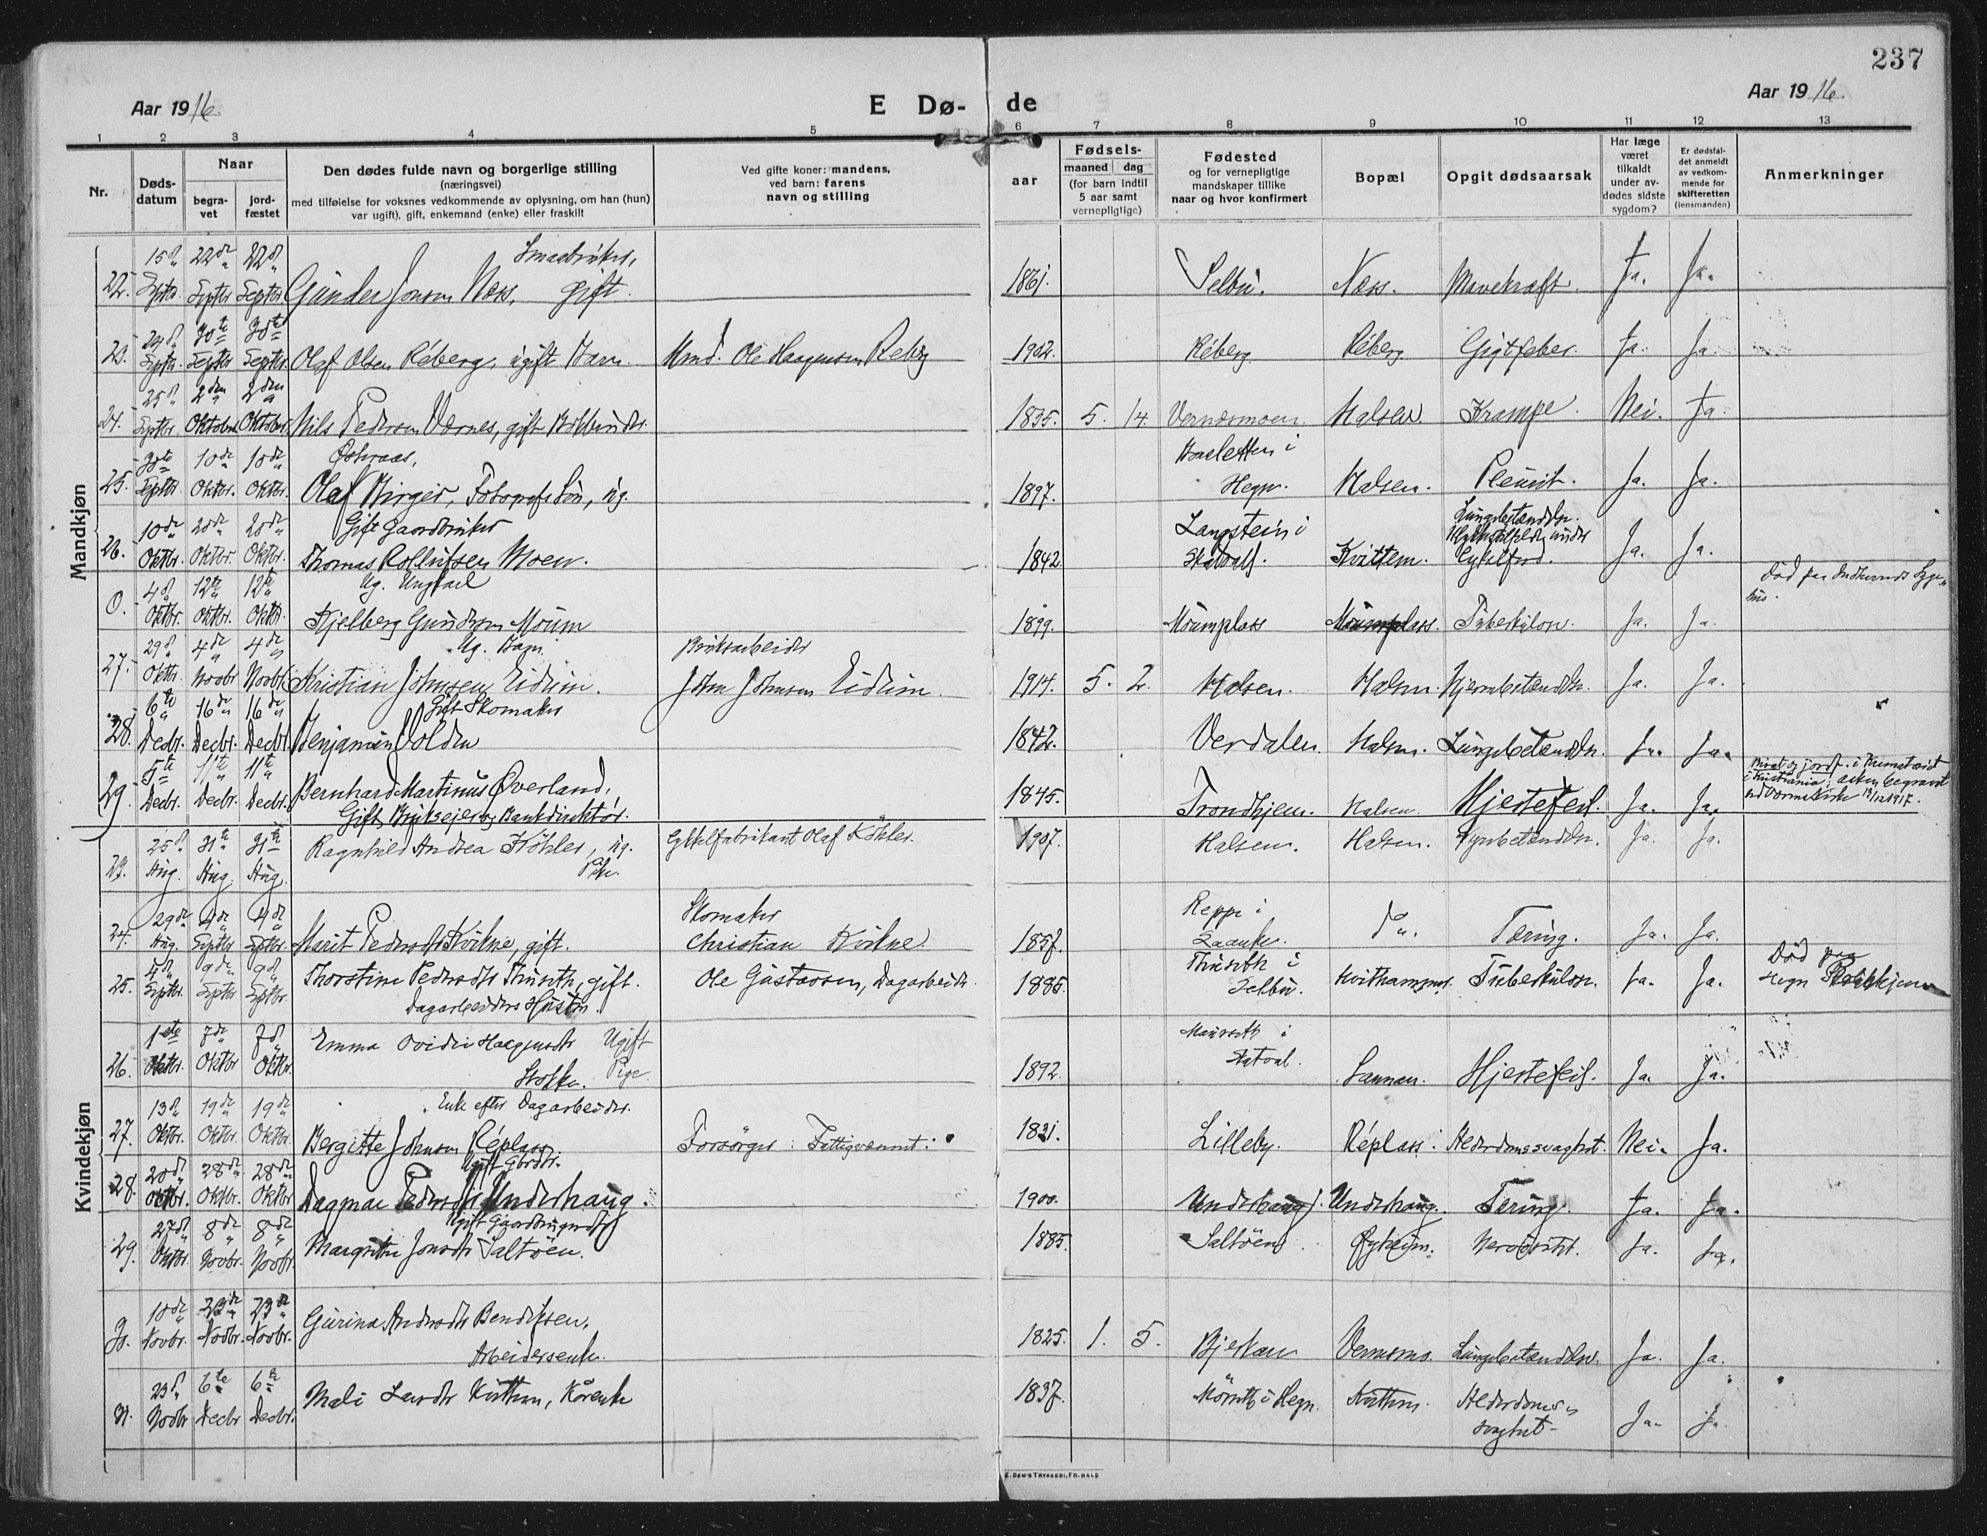 237
Aar 1916.
E Dø- de
Aar 1916.
1 2 3 4 5 6 7 8 9 10 11 12 13
Nr.
Døds-
datum
Naar
begra-
vet
jord-
fæstet
Den dødes fulde navn og borgerlige stilling
(næringsvei)
med tilføielse for voksnes vedkommende av oplysning, om han (hun)
var ugift), gift, enkemand (enke) eller fraskilt
Ved gifte koner: mandens,
ved barn: farens
navn og stilling
aar
Fødsels-
maaned dag
(for barn indtil
5 aar samt
vernepligtige)
Fødested
og for vernepligtige
mandskaper tillike
naar og hvor konfirmert
Bopæl
Opgit dødsaarsak
Har læge
været
tilkaldt
under av-
dødes sidste
sygdom?
Er dødsfal-
det anmeldt
av vedkom-
mende for
skifteretten
(lensmanden)
Anmerkninger
Mandkjøn
22. 15d Septbr. 22de Septbr 22d Septbr Smaabruker, Gunder Jonsen Næss, gift. 1861. Selbu. Næss. Mavekræft. Ja. Ja.
23. 24d Septbr. 30te Septbr 30te Septbr Olaf Olsen Réberg, ugift Barn 1902. Réberg Réberg Gigtfeber. Ja. Ja.
24. 25d Septbr. 2den Oktober 2den Oktober Nils Pedersen Værnes, gift 1835. 5. 14. Halsen Krampe. Nei. Ja.
25. 30te Septbr. 10de Oktbr. 10de Oktbr. Olaf Birger, Fotografs Søn, ug. 1897. Hegn. Halsen. Ja. Ja.
26. 10de Oktbr. 20de Oktbr. 20de Oktbr. Gift Gaardbruker
Thomas Rollufsen Moen. 1842 Langstein i
Skatval. Kvittem. Lungebetændelse. Ja. Ja.
0. 4d Oktbr. 12te Oktbr. 12te Oktbr. Ug. Ungkarl
Kjelberg Gundersen Moum 1899. Moumplass Moumplass. Tuberkulose. Ja. Ja. Død paa Indherreds Syge-
hus.
27. 29d Oktbr. 4de Novbr 4de Novbr Ug. Barn
Kristian Johnsen Eidum. Bruksarbeider
John Johnsen Eidum. 1914. 5. 2. Halsen. Halsen. Hjernebetændelse. Ja. Ja.
28. 6te Decbr. 16de Decbr. 16de Decbr Gift Skomaker
Benjamin Volden 1842. Verdalen. Halsen. Lungebetændelse. Ja. Ja.
29. 5te Decbr. 11te Decbr. 11te Decbr. Bernhard Martinus Øverland,
Gift, Brukseier og Bankdirektør. 1845. Trondhjem. Halsen. Hjertefeil. Ja. Ja. i Kristiania; asken begravet
Kvindekjøn
23. 25d Aug. 31te Aug. 31te Aug. Ragnhild Andrea Köhler, ug.
Pike Cykkelfabrikant Olaf Köhler. 1907. Halsen. Halsen. Ja. Ja.
24. 29de Aug. 4de Septbr 4de Septbr Marit Pedersdtr Kvikne, gift. Skomaker
Christian Kvikne. 1857. Reppe i Do. Tæring. Ja. Ja.
25. 4d Septbr. 9de Septbr 9de Septbr. Thorstine Pedersdtr , gift.
Dagarbeiders Hustru. Ole Gustavsen, Dagarbeider. 1885. Selbu. Kvithammer. Tuberkulose. Ja. Ja. Død paa
Hegn
26. 1ste Oktbr. 7de Oktbr 7d Oktbr. Emma Ovidie Haagensdtr Ugift
Stokke. Pige 1892. i
Skatval. Sannan. Hjertefeil. Ja. Ja.
27. 13d Oktbr. 19de Oktbr. 19de Oktbr. Enke efter Dagarbeider.
Bergitte Johnsen Réplass Forsörges : Fattigvæsenet. 1831. Lilleby. Réplass. Alderdomssvaghet. Nei. Ja.
28. 20d Oktbr. 28de Oktbr. 28de Oktbr Ugift Gbrdtr.
Dagmar Pedersdtr Underhaug. 1900. Underhaug. Underhaug. Tæring. Ja. Ja.
29. 27d Oktbr 8de Novbr. 8de Novbr. Ugift
Margrethe Jonsdtr Saltöen. 1885. Saltöen. Öyheim. Ja. Ja.
30. 10de Novbr. 23de Novbr. 23de Novbr. Gurina Andersdtr Bendiksen,
Arbeidersenke. 1825. 1. 5. Lungebetændelse. Ja. Ja.
31. 23d Novbr 6te Decbr 6te Decbr. Mali Larsdtr Kvittem, Kårenke 1837. i Hegn. Kvittem. Alderdoms-
svaghet. Ja. Ja.
E. SEM'S TRYKKERI, FR.HALD